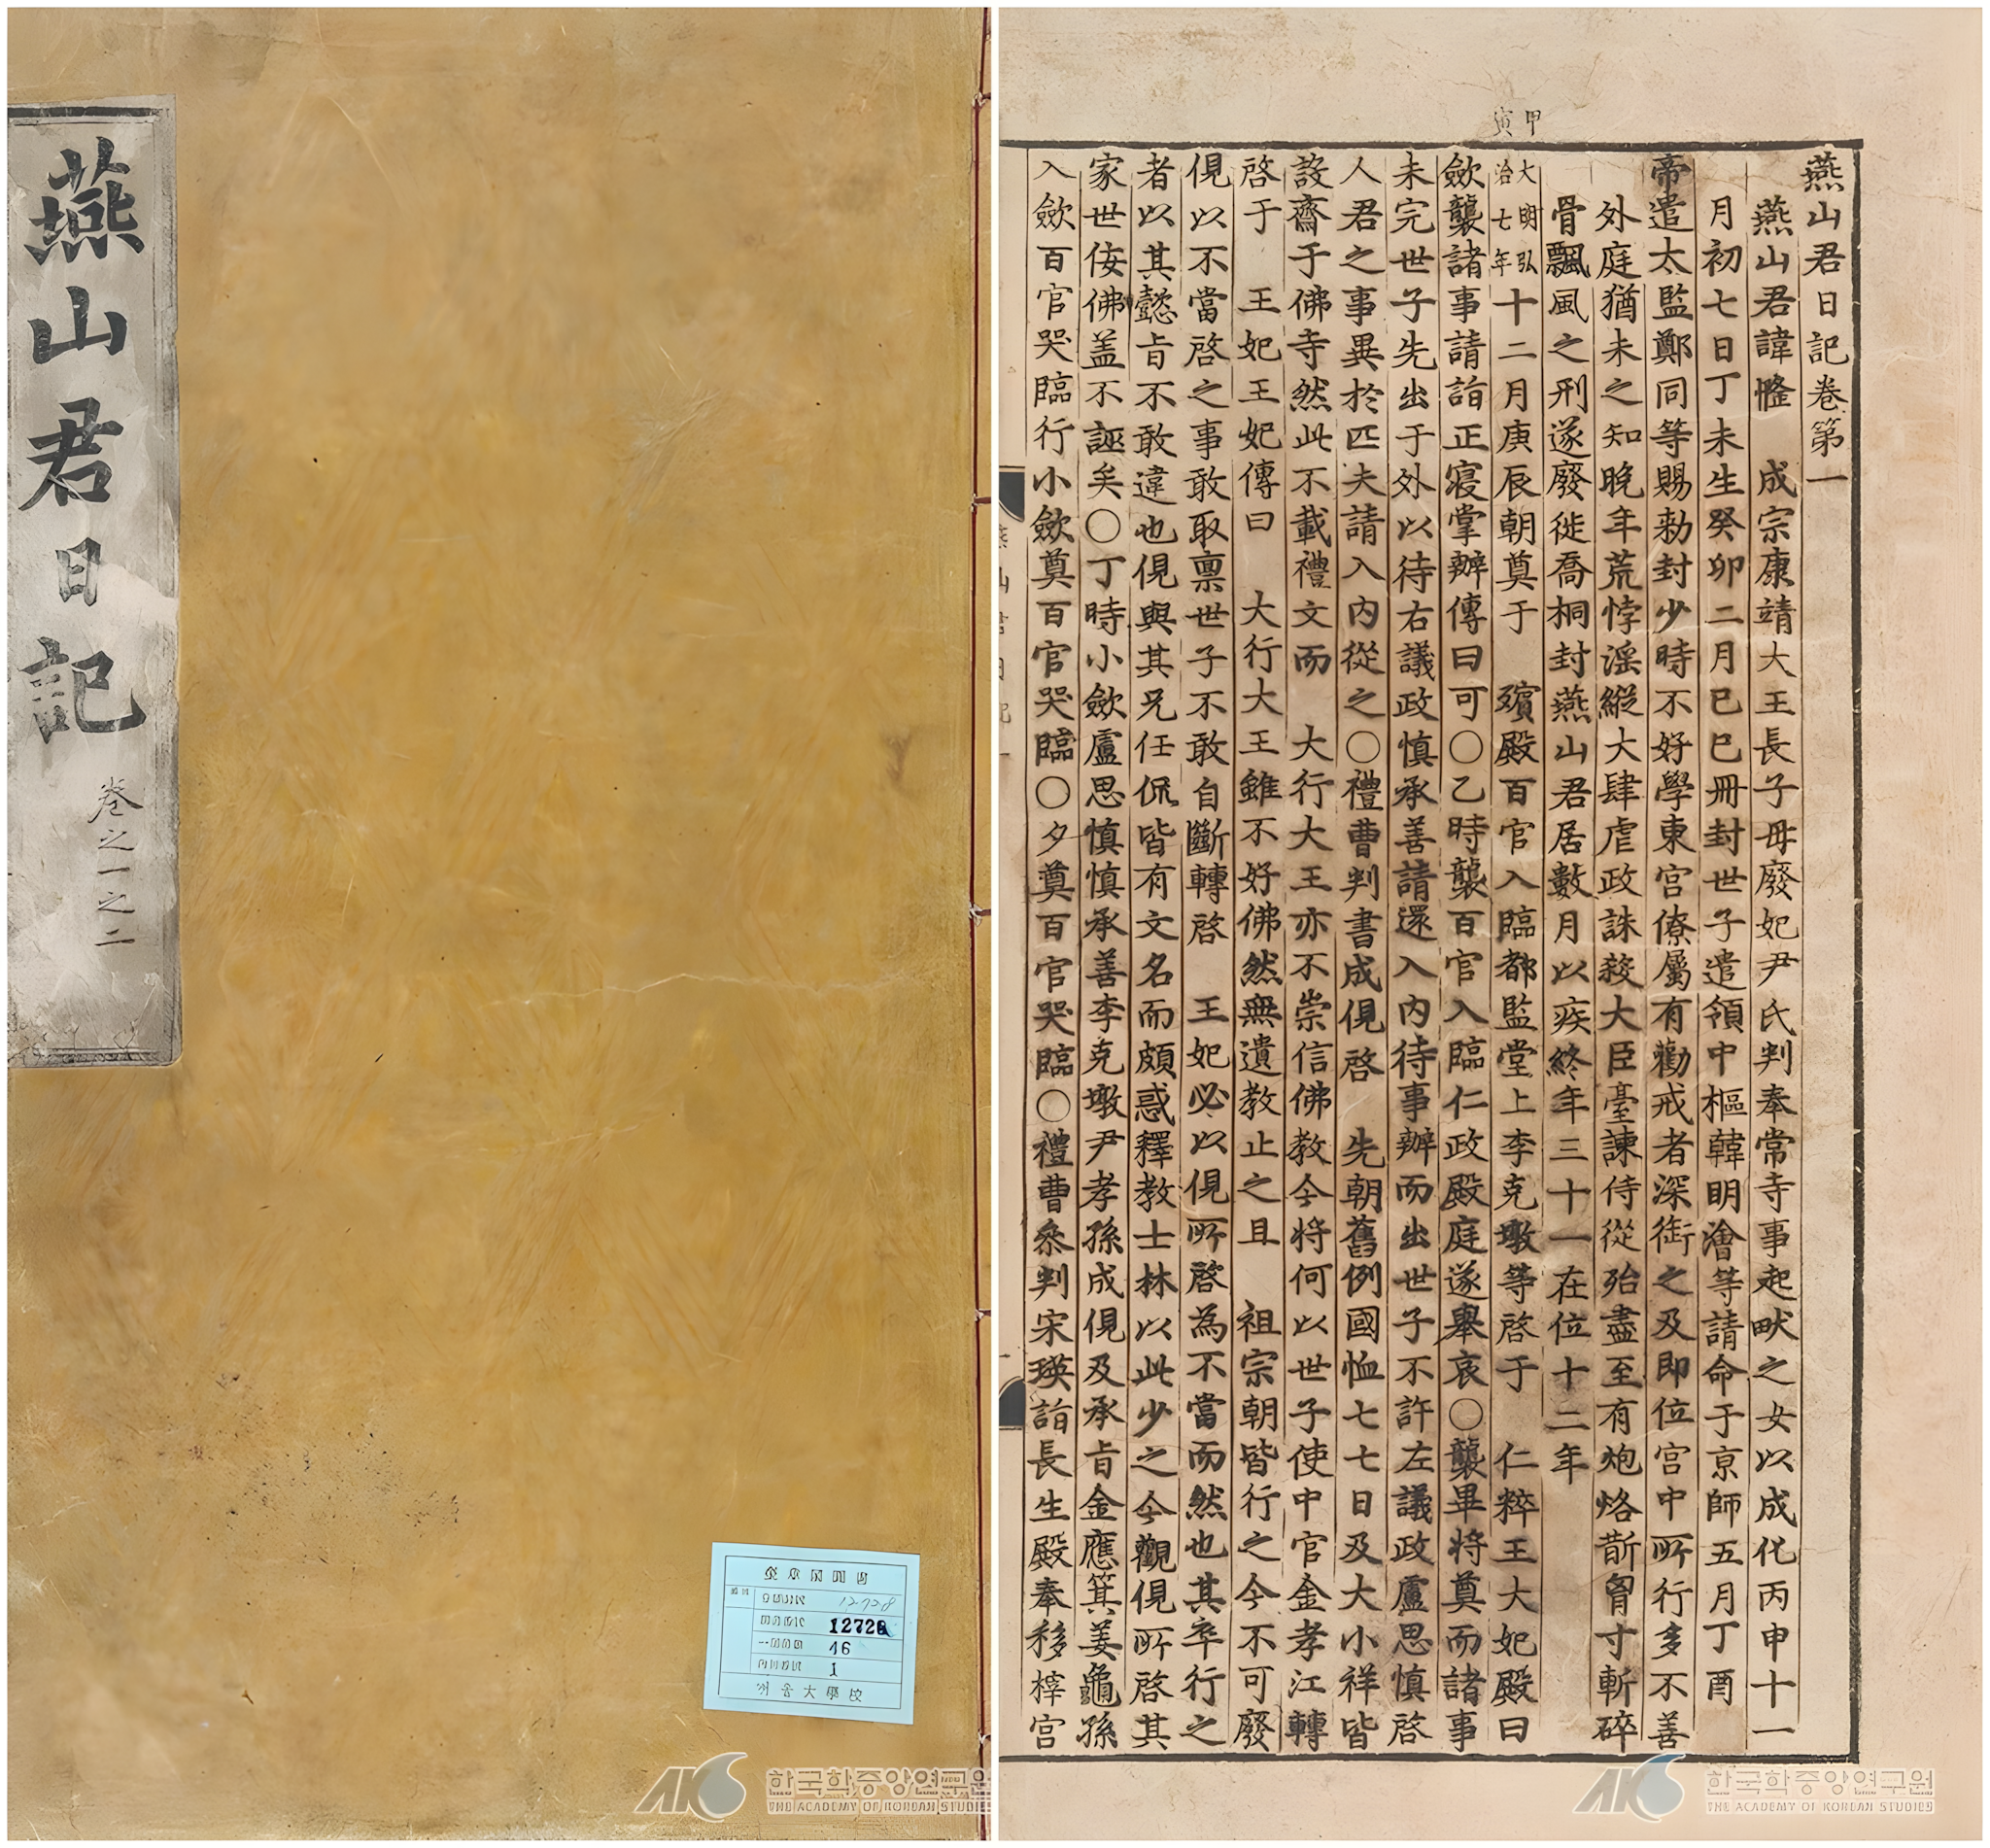 燕山君日記
卷之一之二
12728
12728
16
1
서울大學校
한국학중앙연구원
THE ACADEMY OF KOREAN STUDIES
甲寅
燕山君日記卷第一
燕山君諱㦕 成宗康靖大王長子母廢妃尹氏判奉常寺事起畎之女以成化丙申十一
月初七日丁未生癸卯二月己巳冊封世子遣領中樞韓明澮等請命于京師五月丁酉
帝遣太監鄭同等賜勅封少時不好學東宮僚屬有勸戒者深銜之及即位宮中所行多不善
外庭猶未之知晚年荒悖滛縱大肆虐政誅殺大臣臺諫侍從殆盡至有炮烙斮胷寸斬碎
骨飄風之刑遂廢徙喬桐封燕山君居數月以疾終年三十一在位十二年
大明弘治七年十二月庚辰朝奠于 殯殿百官入臨都監堂上李克墩等啓于 仁粹王大妃殿曰
歛襲諸事請詣正寢掌辦傳曰可〇乙時襲百官入臨仁政殿庭遂擧哀〇襲畢將奠而諸事
未完世子先出于外以待右議政愼承善請還入內待事辦而出世子不許左議政盧思愼啓
人君之事異於匹夫請入內從之〇禮曹判書成俔啓 先朝舊例國恤七七日及大小祥皆
設齋于佛寺然此不載禮文而 大行大王亦不崇信佛敎今將何以世子使中官金孝江轉
啓于 王妃王妃傳曰 大行大王雖不好佛然無遺敎止之且 祖宗朝皆行之今不可廢
俔以不當啓之事敢取禀世子不敢自斷轉啓 王妃必以俔所啓爲不當而然也其卒行之
者以其懿旨不敢違也俔與其兄任侃皆有文名而頗惑釋敎士林以此少之今觀俔所啓其
家世侫佛盖不誣矣〇丁時小歛盧思愼愼承善李克墩尹孝孫成俔及承旨金應箕姜龜孫
入歛百官哭臨行小歛奠百官哭臨〇夕奠百官哭臨〇禮曹叅判宋瑛詣長生殿奉移梓宮
한국학중앙연구원
THE ACADEMY OF KOREAN STUDIES